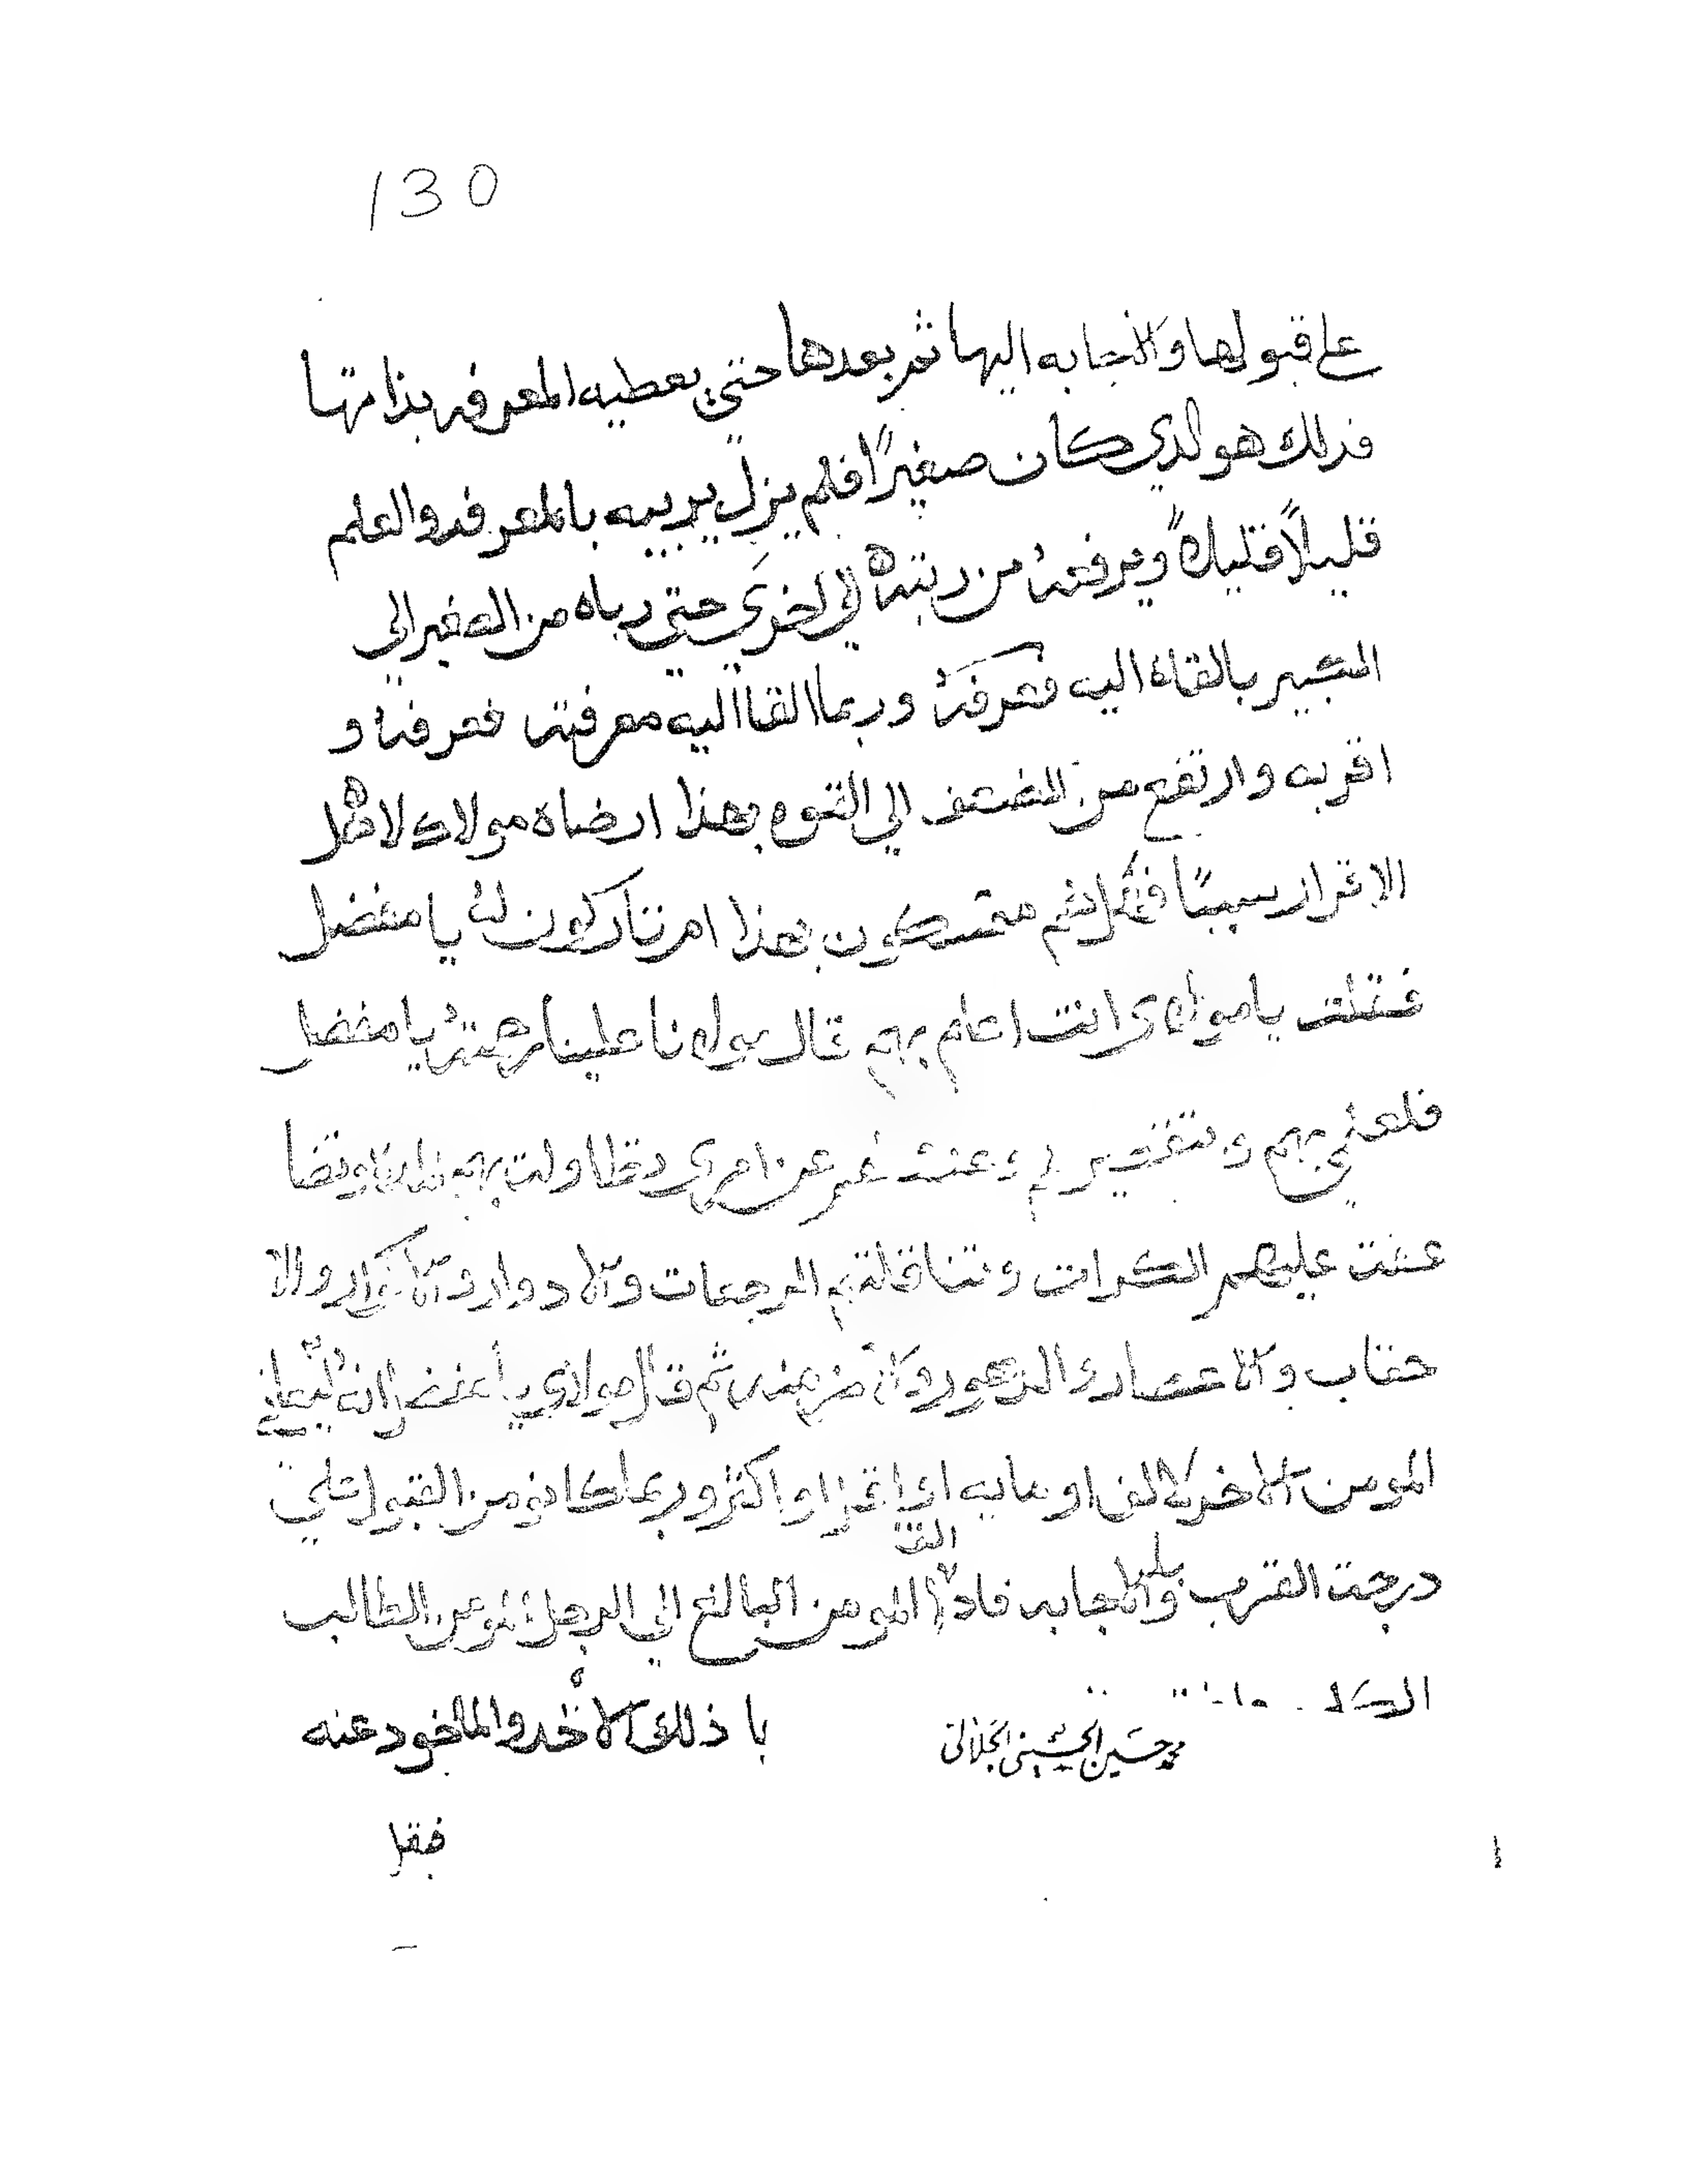 130
على قبولها والانجابه اليها ثم بعدها حتي يعطيه المعرفه بذامتها
فذلك هو لذي كان صغيرًا فلم يزل يربيه بالمعرفه والعلم
قليلاً قليلاً ويرفعه من رتبه الي اخرى حتي رباه من الصغير الي
الكبير بالقاه اليه فعرفهُ وربما القا اليه معرفته فعرفهُ و
اقربه وارتفع من الضعف الي القوه بهذا ارضاه مولاك لاهل
الاقرار سببًا فهل انتم متمسكون بهذا ام تاركون لهُ يا مفضل
فقلت يا مولاي انت اعلم بهم قال مولانا علينا رحمتهُ يا مفضل
فلعلمي بهم وبتقصيرهم وعنت غير عن امري تطاولت بهم وتضا
عفت عليهم الكرات وتناقلتهم الرجعات والادوار والاكوار والا
حقاب والاعصار والدهور والازمنه ثم قال مولاي يا مفضل انه ليعطي
المومن الاخر الالف او مايه او اكثر وربما كانو من القبول علي
درجت القرب والانجابه فاد المومن البالغ الي الرجل المومن الطالب
با ذلك الاخد والماخود عنه
محمد حسين الحسيني الجلالي
فقل